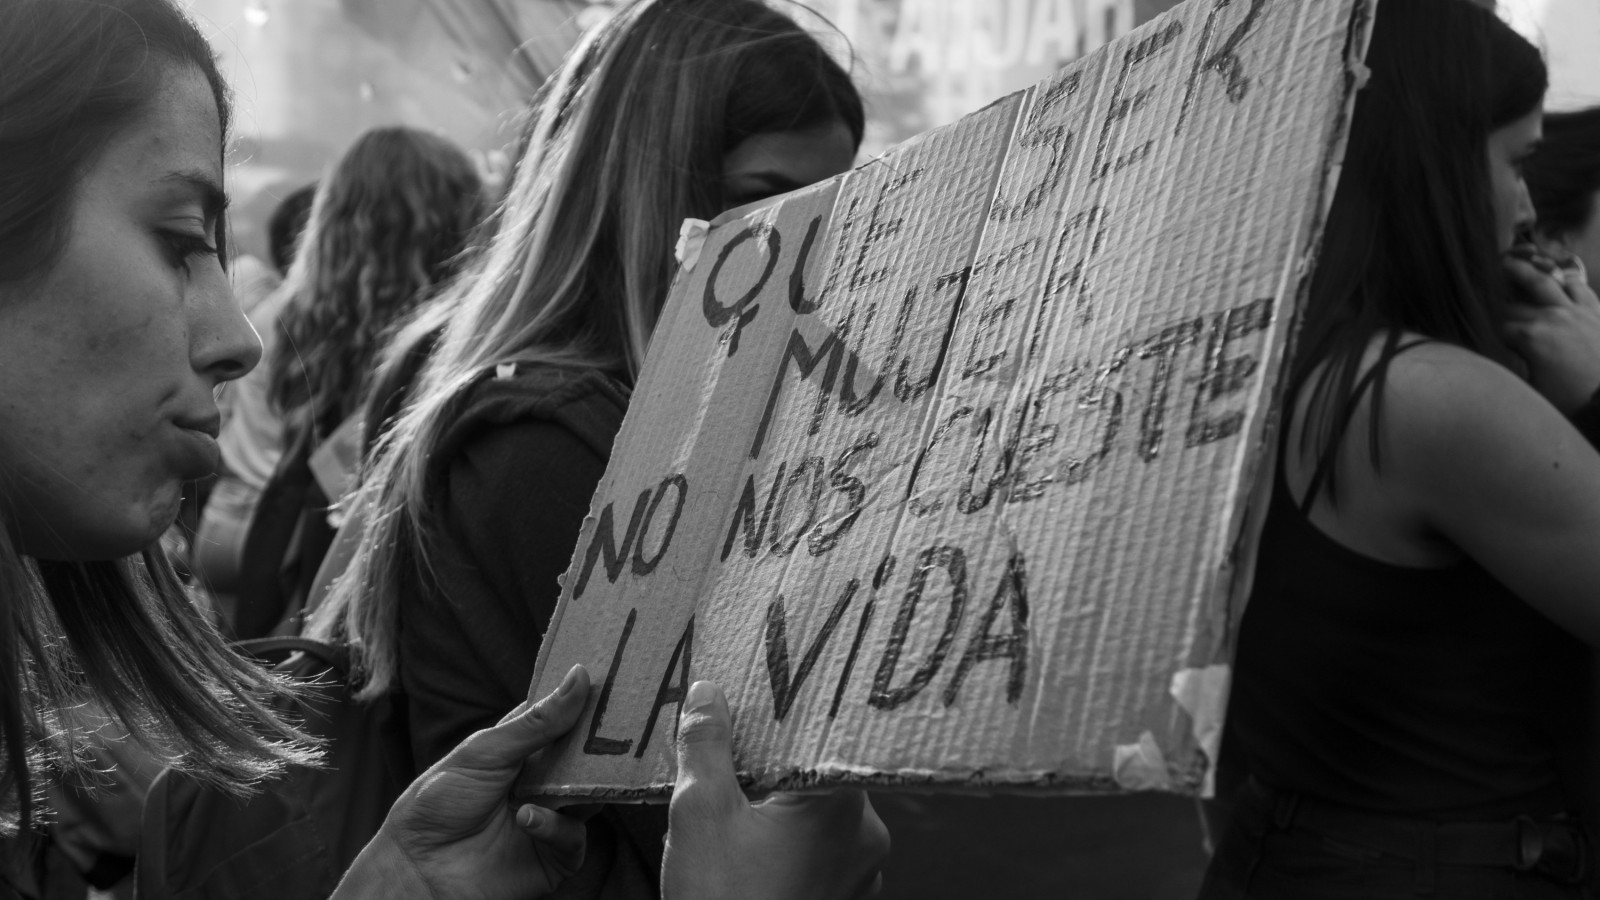 QUE SER
MUJER
NO NOS CUESTE
LA ViDA